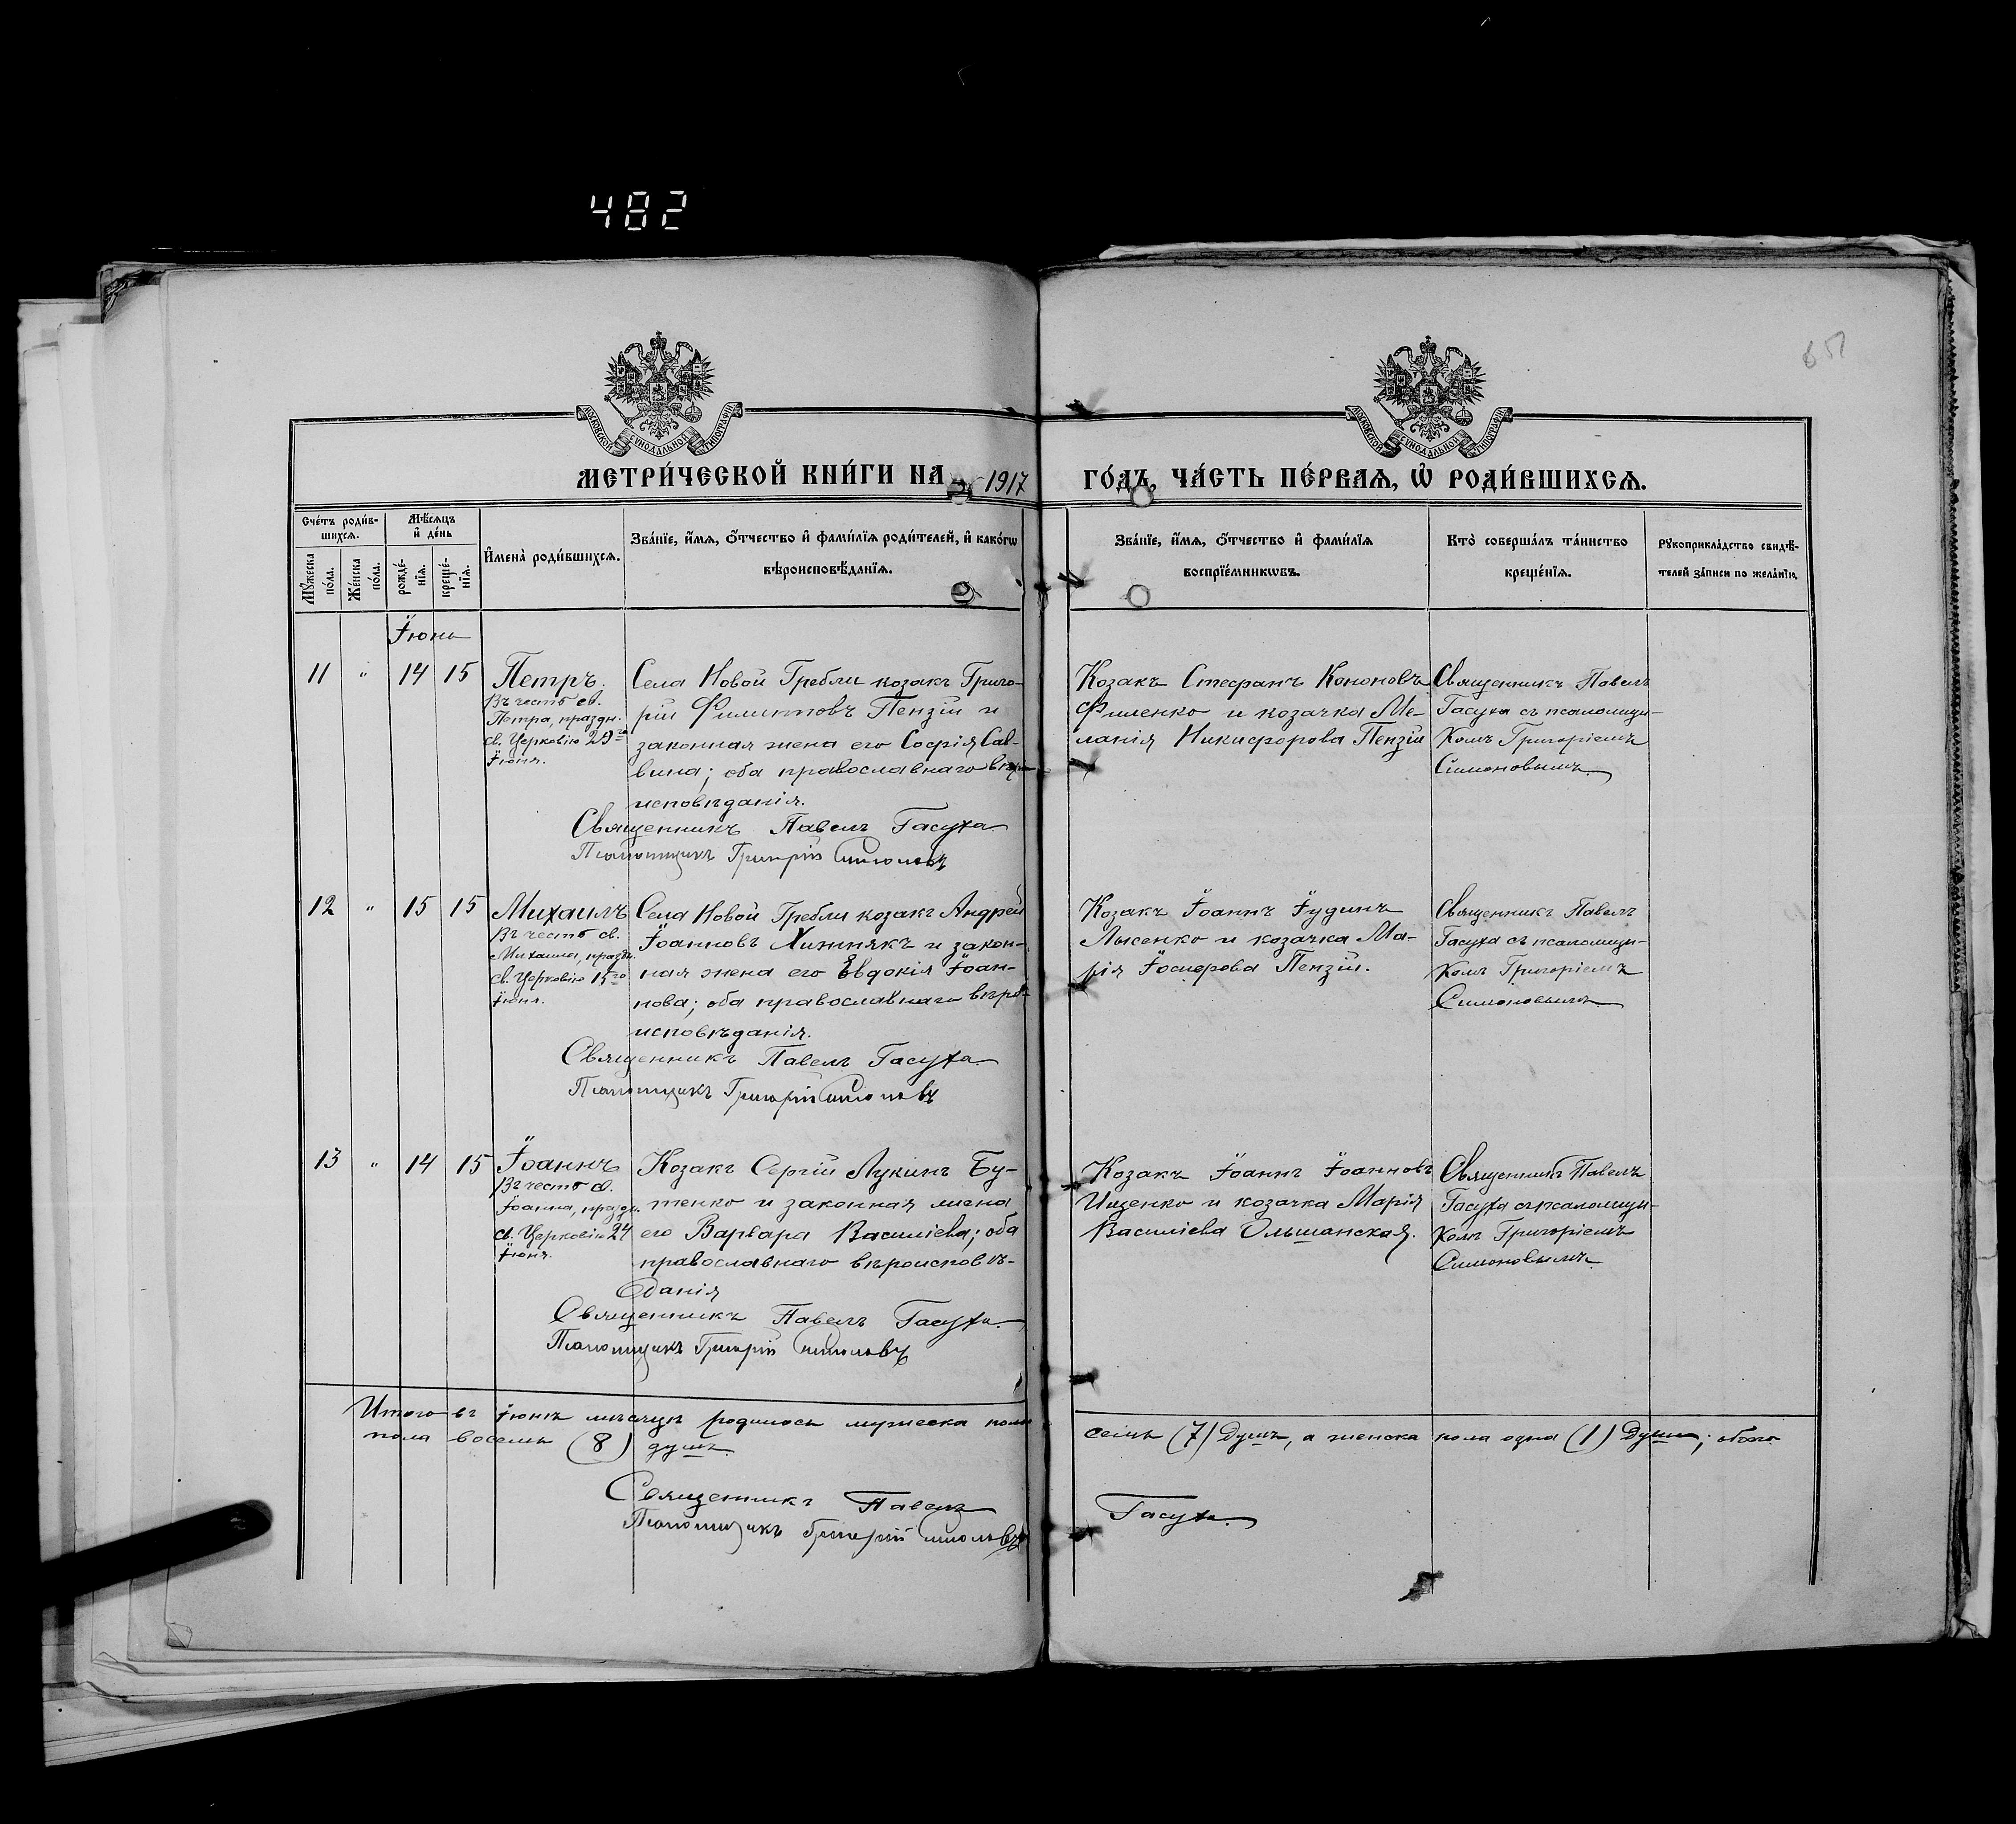 482
МОСКОВСКОЙ СѴНОДАЛЬНОЙ ТИПОГРАФІИ
МОСКОВСКОЙ СѴНОДАЛЬНОЙ ТИПОГРАФІИ
МЕТРИ́ЧЕСКОЙ КНИ́ГИ НА 1917 ГО́ДЪ, ЧА́СТЬ ПЕ́РВАѦ, Ѡ҆ РОДИ́ВШИХСѦ.
Счéтъ роди́в-
шихсѧ.
Мꙋ́жеска по́ла.
Же́нска по́ла.
Мѣ́сѧцъ
и҆ де́нь
рожде́-
нїѧ.
креще́-
нїѧ.
И҆мена̀ роди́вшихсѧ.
Зва́нїе, и҆́мѧ, ѻ҆́тчество и҆ фами́лїѧ роди́телей, и҆ како́гѡ
вѣроисповѣ́данїѧ.
Зва́нїе, и҆́мѧ, ѻ҆́тчество и҆ фами́лїѧ
воспрїе́мникѡвъ.
Кто̀ соверша́лъ та́инство
креще́нїѧ.
Рꙋкоприкла́дство свидѣ́-
телей за́писи по жела́нїю.
Іюнь
11 " 14 15
Петръ.
Въ честь св.
Петра, праздн.
св. Церковію 29го
Іюня.
Села Новой Гребли козакъ Григо-
рій Филиповъ Пензій и
законная жена его Софія Сав-
вина; оба православнаго вѣро-
исповѣданія.
Священникъ Павелъ Гасуха
Псаломщикъ Григорій Симоновъ
Козакъ Стефанъ Кононовъ
Филенко и козачка Ме-
ланія Никифорова Пензій
Священникъ Павелъ
Гасуха съ псаломщи-
комъ Григоріемъ
Симоновымъ.
12 " 15 15
Михаилъ
Въ честь св.
Михаила, праздн.
св. Церковію 15го
Іюня.
Села Новой Гребли козакъ Андрей
Іоанновъ Хижнякъ и закон-
ная жена его Евдокія Іоан-
нова; оба православнаго вѣро-
исповѣданія.
Священникъ Павелъ Гасуха
Псаломщикъ Григорій Симоновъ
Козакъ Іоаннъ Іудинъ
Лысенко и козачка Ма-
рія Іосифова Пензій.
Священникъ Павелъ
Гасуха съ псаломщи-
комъ Григоріемъ
Симоновымъ.
13 " 14 15
Іоаннъ
Въ честь св.
Іоанна, праздн.
св. Церковію 24
Іюня.
Козакъ Сергій Лукинъ Бу-
тенко и законная жена
его Варвара Василіева; оба
православнаго вѣроисповѣ-
данія
Священникъ Павелъ Гасуха.
Псаломщикъ Григорій Симоновъ
Козакъ Іоаннъ Іоанновъ
Ищенко и козачка Марія
Василіева Ольшанская.
Священникъ Павелъ
Гасуха съ псаломщи-
комъ Григоріемъ
Симоновымъ.
Итого въ Іюнѣ мѣсяцѣ родилось мужеска пола семь (7) душъ, а женска пола одна (1) душа; обоего
пола восемь (8) душъ.
Священникъ Павелъ Гасуха.
Псаломщикъ Григорій Симоновъ